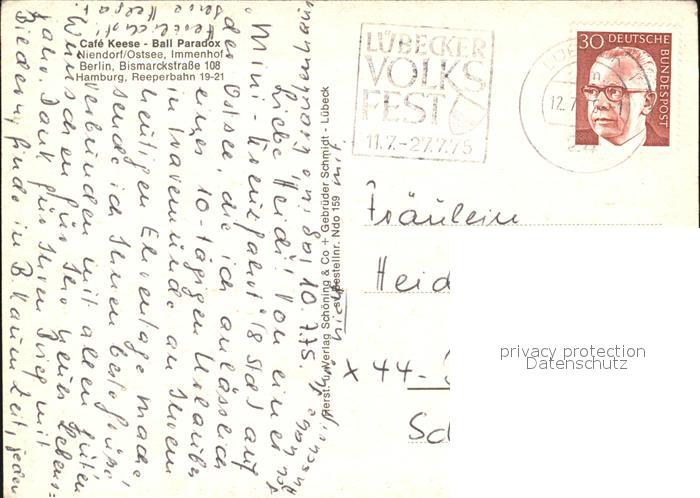 Café Keese - Ball Paradox
Niendorf/Ostsee, Immenhof
Berlin, Bismarckstraße 108
Hamburg, Reeperbahn 19-21
LÜBECKER
VOLKS
FEST
11.7.-27.7.75
30 DEUTSCHE
BUNDESPOST
12.7
Herst. u. Verlag Schöning & Co + Gebrüder Schmidt - Lübeck
Bestellnr. Ndo 159
10.7.75.
Liebe Heidi! Von einer
"Mini-Kreuzfahrt" 18 Std auf
der Ostsee, die ich anlässlich
eines 10-tägigen Urlaubs
in Travemünde an Ihrem
heutigen Ehrentage mache
sende ich Ihnen
verbunden mit allen guten
Wünschen für Ihr neues Lebens=
jahr. Dank für Ihren Brief mit
finde in B kaum Zeit, jeden
Fräulein
Heid
X 44-
Sc
privacy protection
Datenschutz